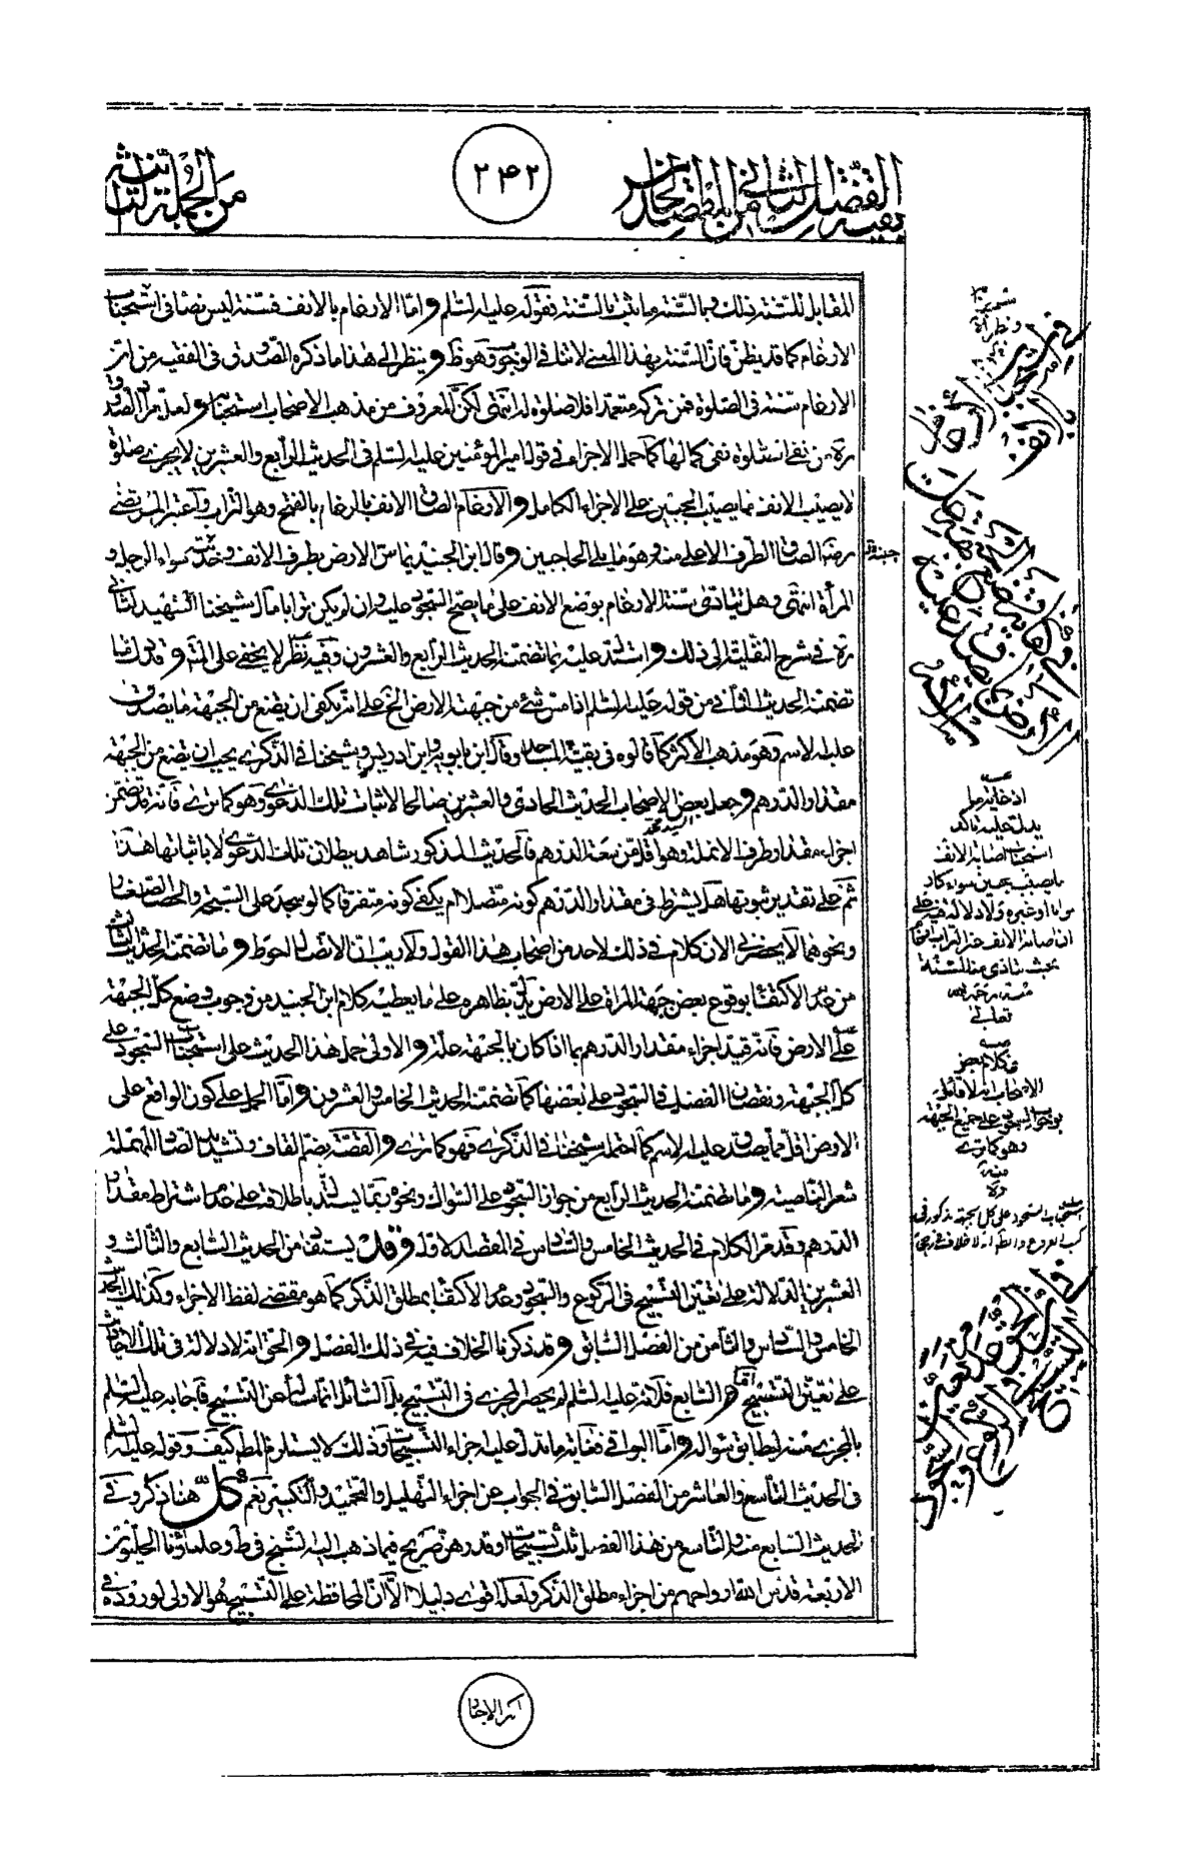 بقية الفصل الثاني من المقصد الخامس
٢٤٢
من الجملة الثانية
المقابل للسنة ذلك وبالسنة ما ثبت بالسنة فقوله عليه السلم واما الارغام بالانف فسنة ليس نصا في استحباب
الارغام كما قد يظن فان السنة بهذا المعنى لا تنافي الوجوب وهو ظ وينظر الى هذا ما ذكره الصدوق في الفقيه من ان
الارغام سنة في الصلوة فمن تركه متعمدا فلا صلوة له انتهى لكن المعروف من مذهب الاصحاب استحبابه ولعل مراد الصدوق
ره من نفي الصلوة نفي كمالها كما حمل الاجزاء في قول امير المؤمنين عليه السلم في الحديث الرابع والعشرين لا يجزي صلوة
لا يصيب الانف ما يصيب الجبين على الاجزاء الكامل والارغام الصاق الانف بالرغام بالفتح وهو التراب واعتبر المرتضى
رضه الصاق الطرف الاعلى منه وهو ما يلي الحاجبين وقال ابن الجنيد يماس الارض بطرف الانف وخديه سواء الرجل و
المرأة انتهى وهل تتادى سنة الارغام بوضع الانف على ما يصح السجود عليه وان لم يكن ترابا مال شيخنا الشهيد الثاني
ره في شرح النفلية الى ذلك واستدل عليه بما تضمنه الحديث الرابع والعشرون وفيه نظر لا يخفى على المتأمل وقد دل ما
تضمنه الحديث الثاني من قوله عليه السلم اذا مس شئ من جبهته الارض الخ على انه يكفي ان يضع من الجبهة ما يصدق
عليه الاسم وهو مذهب الاكثر كما قالوه في بقية المساجد وقال ابن بابويه وابن ادريس وشيخنا في الذكرى يجب ان يضع من الجبهة
مقدار الدرهم وجعل بعض الاصحاب الحديث الحادي والعشرين صالحا لاثبات تلك الدعوى وهو كما ترى فانه قد تضمن
اجزاء مقدار طرف الانملة وهو اقل من سعة الدرهم فالحديث المذكور شاهد ببطلان تلك الدعوى لا باثباتها هذا
ثم على تقدير ثبوتها هل يشترط في مقدار الدرهم كونه متصلا ام يكفي كونه متفرقا كما لو سجد على السبحة والحصا الصغار
ونحوهما لا يحضرني الان كلام في ذلك لاحد من اصحاب هذا القول ولا ريب ان الاتصال احوط وما تضمنه الحديث الثالث
من عدم الاكتفاء بوقوع بعض جبهة المراة على الارض يدل بظاهره على ما يعطيه كلام ابن الجنيد من وجوب وضع كل الجبهة
على الارض فانه قيد اجزاء مقدار الدرهم بما اذا كان بالجبهة علة والاولى حمل هذا الحديث على استحباب السجود على
كل الجبهة ونقصان الفضل في السجود على بعضها كما تضمنه الحديث الخامس والعشرون واما الحمل على كون الواقع على
الارض اقل مما يصدق عليه الاسم كما احتمله شيخنا في الذكرى فهو كما ترى والقصة بضم القاف وتشديد الصاد المهملة
شعر الناصية وما تضمنه الحديث الرابع من جواز السجود على السواك ونحوه مما يستدل باطلاقه على عدم اشتراط مقدار
الدرهم وقد مر الكلام في الحديث الخامس والسادس في الفصل الاول وقد يستفاد من الحديث السابع والثالث و
العشرين الدلالة على تعين التسبيح في الركوع والسجود وعدم الاكتفاء بمطلق الذكر كما هو مقتضى لفظ الاجزاء وكذلك الحديث
الخامس والسادس والثامن من الفصل السابق وقد ذكرنا الخلاف فيه في ذلك الفصل والحق انه لا دلالة في تلك الاحاديث
على تعين التسبيح اما السابع فلانه عليه السلم لم يحصر المجزي في التسبيح بل السائل انما سأل عن التسبيح فاجابه عليه السلم
بالمجزي منه ليطابق سؤاله واما البواقي فغاية ما تدل عليه اجزاء التسبيحات وذلك لا يستلزم المط كيف وقوله عليه السلم
في الحديث التاسع والعاشر من الفصل السابق في الجواب عن اجزاء التهليل والتحميد والتكبير نعم كل هذا ذكر وفي
الحديث السابع منه والتاسع من هذا الفصل ثلث تسبيحات او قدرهن صريح فيما ذهب اليه الشيخ في ط وعلماؤنا الحليون
الاربعة قدس الله ارواحهم من اجزاء مطلق الذكر ولعله اقوى دليلا الا ان المحافظة على التسبيح هو الاولى لوروده في
اكثر الاخبار
اذ غاية ما
يدل عليه تأكد
استحباب اصابة الانف
ما يصيب الجبين سواء كان
ترابا او غيره ولا دلالة فيه على
ان اصابة الانف غير التراب
بحيث تتادى منه السنة
منه
في كلام بعض
الاصحاب انه لا قائل
بوجوب السجود على جميع الجبهة
وهو كما ترى
منه
استحباب السجود على كل الجبهة مذكور في
كتب الفروع